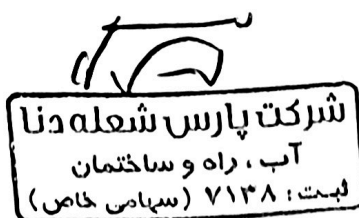 شرکت پارس شعله دنا
آب ، راه و ساختمان
ثبت : ۷۱۳۸ (سهامی خاص)